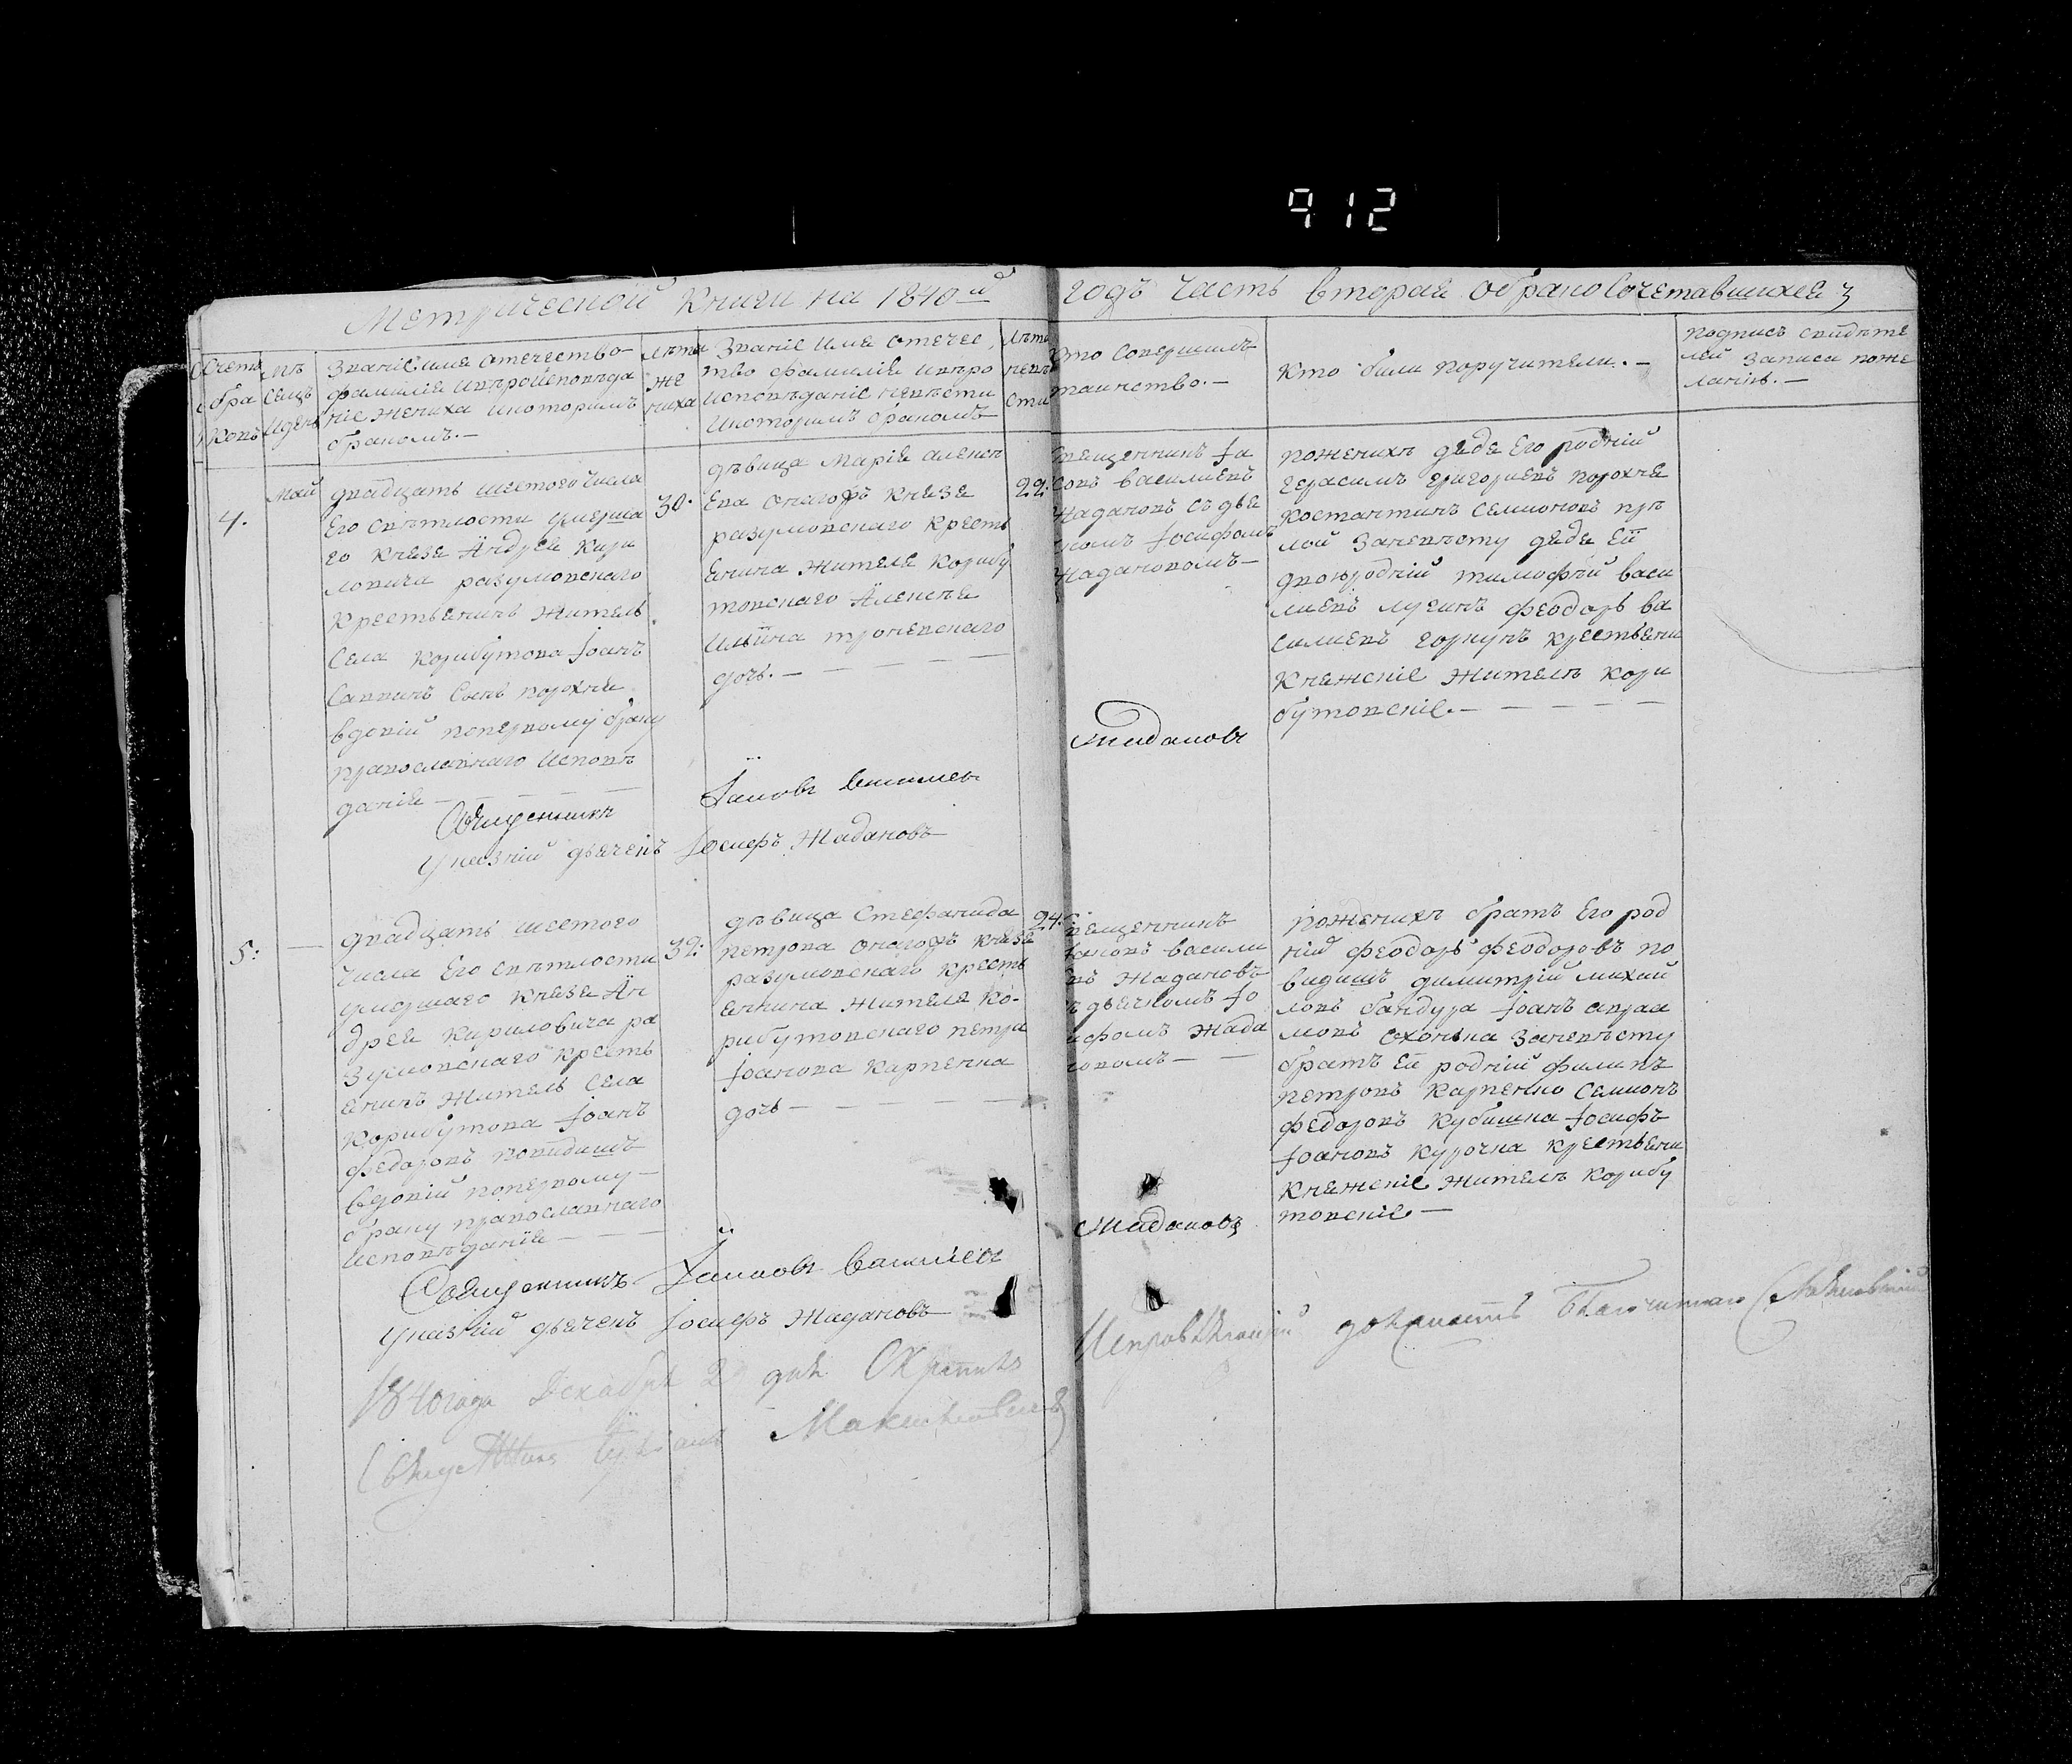 912
Метрической Книги на 1840й годъ Часть вторая обрако Сочетавшихся
Счетъ
бра
ковъ
Мѣ
сецъ
идень
Званіе имя отечество
фамиліе ивѣроисповѣда
ніе жениха икоторимъ
бракомъ.—
Лѣта
же
ниха
Званіе имя отечес
тво фамиліе ивѣро
исповѣданіе невѣсти
икоторимъ бракомъ
Лѣта
невѣ
сти
Кто Совершилъ
таинство.—
Кто били поручители.—
подписъ свидѣте
лей записа поже
ланію.—
4.
Май
двадцать шестого числа
Его свѣтлости умерша
го князя Андрея Кири
ловича разумовскаго
крестьянинъ житель
села Корибутова Іоанъ
Саввинъ Сынъ порохня
вдовій поперному браку
православнаго исповѣ
данія
30.
дѣвица Марія алексѣ
ева онагожъ князя
разумовскаго кресть
янина жителя Корибу
товскаго Алексѣя
Ильина
дочь.—
22.
Священникъ Іа
ковъ василиевъ
Жадановъ съ дья
комъ Іосифомъ
Жадановомъ—
Жадановъ
поженихѣ дядя Его родній
герасимъ григориевъ порохня
костантинъ семионовъ
заневѣсту дядя Ей
двоюродній тимофѣй васи
лиевъ лугинъ феодоръ ва
силиевъ горкунъ крестьяни
Княжскіе жителѣ Кори
бутовскіе.—
Священникъ Іаковъ Василиевъ
указній дьячекъ Іосифъ Жадановъ
5:
—
двадцать шестого
числа Его свѣтлости
умершаго князя Ан
дрея Кириловича ра
зумовскаго кресть
янинъ житель села
Корибутова Іоанъ
федоровъ повидишъ
вдовій поперному
браку православнаго
исповѣданія
32:
дѣвица Стефанида
петрова онагожъ князя
разумовскаго кресть
янина жителя Ко-
рибутовскаго петра
Іоанова Карпенка
дочь—
24.
Священникъ
Іаковъ васили
евъ Жадановъ
съ дьячкомъ Іо
сифомъ Жада
новомъ—
Жадановъ
поженихѣ братъ Его род
ній феодоръ феодоровъ по
видишъ димитрій михай
ловъ бандура Іоанъ авраа
мовъ заневѣсту
братъ Ей родній филипъ
петровъ Карпенко Семионъ
федоровъ Кубишка Іосифъ
Іоановъ Курочка крестьяни
Княжскіе жителѣ Корибу
товскіе—
Священникъ Іаковъ Василиевъ
указній дьячекъ Іосифъ Жадановъ
1840 года Декабря дня
Священникъ
должность Благочиннаго